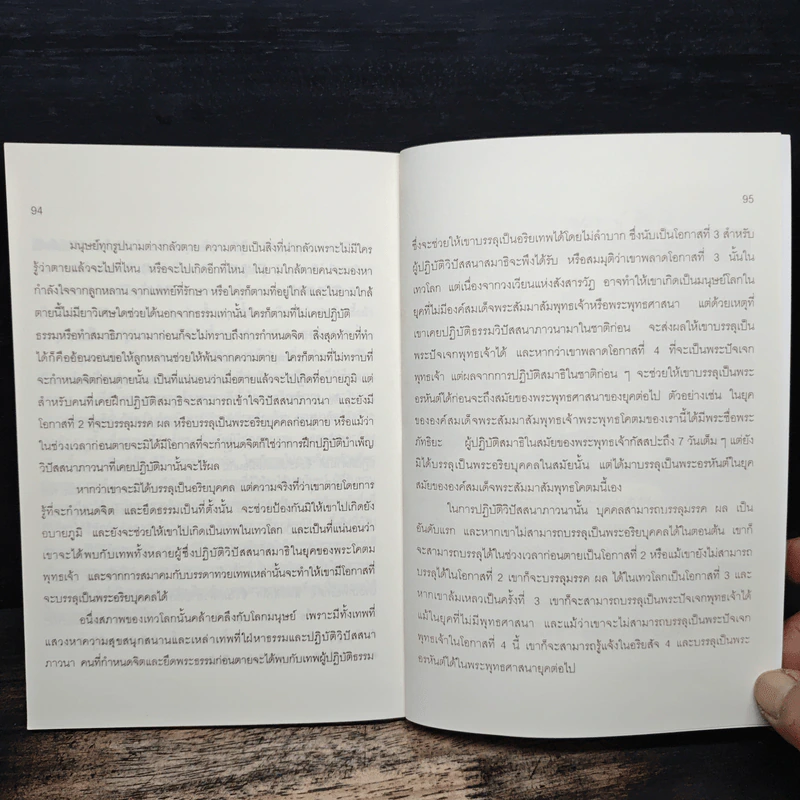 94
มนุษย์ทุกรูปนามต่างกลัวตาย ความตายเป็นสิ่งที่น่ากลัวเพราะไม่มีใคร
รู้ว่าตายแล้วจะไปที่ไหน หรือจะไปเกิดอีกที่ไหน ในยามใกล้ตายคนจะมองหา
กำลังใจจากลูกหลาน จากแพทย์ที่รักษา หรือใครก็ตามที่อยู่ใกล้ และในยามใกล้
ตายนี้ไม่มียาวิเศษใดช่วยได้นอกจากธรรมเท่านั้น ใครก็ตามที่ไม่เคยปฏิบัติ
ธรรมหรือทำสมาธิภาวนามาก่อนก็จะไม่ทราบถึงการกำหนดจิต สิ่งสุดท้ายที่ทำ
ได้ก็คืออ้อนวอนขอให้ลูกหลานช่วยให้พ้นจากความตาย ใครก็ตามที่ไม่ทราบที่
จะกำหนดจิตก่อนตายนั้น เป็นที่แน่นอนว่าเมื่อตายแล้วจะไปเกิดที่อบายภูมิ แต่
สำหรับคนที่เคยฝึกปฏิบัติสมาธิจะสามารถเข้าใจวิปัสสนาภาวนา และยังมี
โอกาสที่ 2 ที่จะบรรลุมรรค ผล หรือบรรลุเป็นพระอริยบุคคลก่อนตาย หรือแม้ว่า
ในช่วงเวลาก่อนตายจะมิได้มีโอกาสที่จะกำหนดจิตก็ใช่ว่าการฝึกปฏิบัติบำเพ็ญ
วิปัสสนาภาวนาที่เคยปฏิบัติมานั้นจะไร้ผล
หากว่าเขาจะมิได้บรรลุเป็นอริยบุคคล แต่ความจริงที่ว่าเขาตายโดยการ
รู้ที่จะกำหนดจิต และยึดธรรมเป็นที่ตั้งนั้น จะช่วยป้องกันมิให้เขาไปเกิดยัง
อบายภูมิ และยังจะช่วยให้เขาไปเกิดเป็นเทพในเทวโลก และเป็นที่แน่นอนว่า
เขาจะได้พบกับเทพทั้งหลายผู้ซึ่งปฏิบัติวิปัสสนาสมาธิในยุคของพระโคตม
พุทธเจ้า และจากการสมาคมกับบรรดาทวยเทพเหล่านั้นจะทำให้เขามีโอกาสที่
จะบรรลุเป็นพระอริยบุคคลได้
อนึ่งสภาพของเทวโลกนั้นคล้ายคลึงกับโลกมนุษย์ เพราะมีทั้งเทพที่
แสวงหาความสุขสนุกสนานและเหล่าเทพที่ใฝ่หาธรรมและปฏิบัติวิปัสสนา
ภาวนา คนที่กำหนดจิตและยึดพระธรรมก่อนตายจะได้พบกับเทพผู้ปฏิบัติธรรม
95
ซึ่งจะช่วยให้เขาบรรลุเป็นอริยเทพได้โดยไม่ลำบาก ซึ่งนับเป็นโอกาสที่ 3 สำหรับ
ผู้ปฏิบัติวิปัสสนาสมาธิจะพึงได้รับ หรือสมมุติว่าเขาพลาดโอกาสที่ 3 นั้นใน
เทวโลก แต่เนื่องจากวงเวียนแห่งสังสารวัฏ อาจทำให้เขาเกิดเป็นมนุษย์โลกใน
ยุคที่ไม่มีองค์สมเด็จพระสัมมาสัมพุทธเจ้าหรือพระพุทธศาสนา แต่ด้วยเหตุที่
เขาเคยปฏิบัติธรรมวิปัสสนาภาวนามาในชาติก่อน จะส่งผลให้เขาบรรลุเป็น
พระปัจเจกพุทธเจ้าได้ และหากว่าเขาพลาดโอกาสที่ 4 ที่จะเป็นพระปัจเจก
พุทธเจ้า แต่ผลจากการปฏิบัติสมาธิในชาติก่อน ๆ จะช่วยให้เขาบรรลุเป็นพระ
อรหันต์ได้ก่อนจะถึงสมัยของพระพุทธศาสนาของยุคต่อไป ตัวอย่างเช่น ในยุค
ขององค์สมเด็จพระสัมมาสัมพุทธเจ้าพระพุทธโคตมของเรานี้ได้มีพระชื่อพระ
ภัททิยะ ผู้ปฏิบัติสมาธิในสมัยของพระพุทธเจ้ากัสสปะถึง 7 วันเต็ม ๆ แต่ยัง
มิได้บรรลุเป็นพระอริยบุคคลในสมัยนั้น แต่ได้มาบรรลุเป็นพระอรหันต์ในยุค
สมัยขององค์สมเด็จพระสัมมาสัมพุทธโคตมนี้เอง
ในการปฏิบัติวิปัสสนาภาวนานั้น บุคคลสามารถบรรลุมรรค ผล เป็น
อันดับแรก และหากเขาไม่สามารถบรรลุเป็นพระอริยบุคคลได้ในตอนต้น เขาก็
จะสามารถบรรลุได้ในช่วงเวลาก่อนตายเป็นโอกาสที่ 2 หรือแม้เขายังไม่สามารถ
บรรลุได้ในโอกาสที่ 2 เขาก็จะบรรลุมรรค ผล ได้ในเทวโลกเป็นโอกาสที่ 3 และ
หากเขาล้มเหลวเป็นครั้งที่ 3 เขาก็จะสามารถบรรลุเป็นพระปัจเจกพุทธเจ้าได้
แม้ในยุคที่ไม่มีพุทธศาสนา และแม้ว่าเขาจะไม่สามารถบรรลุเป็นพระปัจเจก
พุทธเจ้าในโอกาสที่ 4 นี้ เขาก็จะสามารถรู้แจ้งในอริยสัจ 4 และบรรลุเป็นพระ
อรหันต์ได้ในพระพุทธศาสนายุคต่อไป